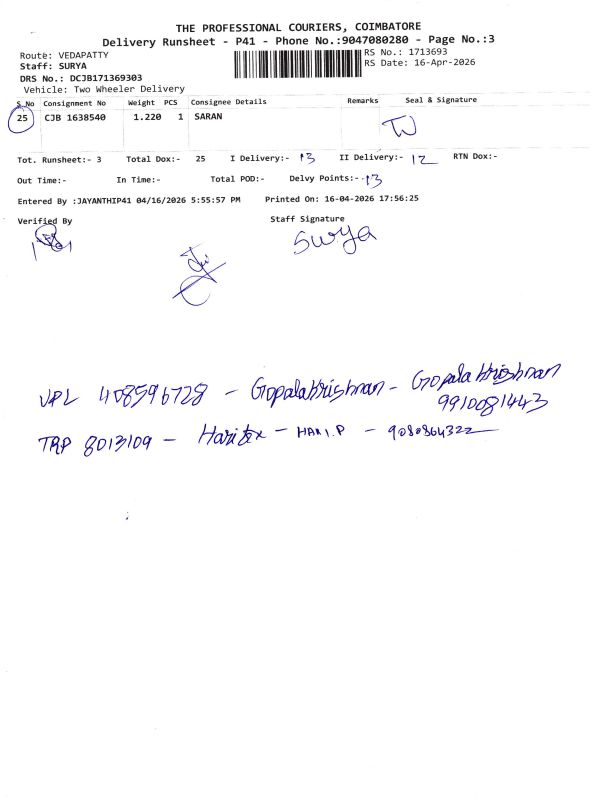 THE PROFESSIONAL COURIERS, COIMBATORE
Delivery Runsheet - P41 - Phone No.:9047080280 - Page No.:3
Route: VEDAPATTY
RS No.: 1713693
Staff: SURYA
RS Date: 16-Apr-2026
DRS No.: DCJB171369303
Vehicle: Two Wheeler Delivery
S.No Consignment No Weight PCS Consignee Details Remarks Seal & Signature
25 CJB 1638540 1.220 1 SARAN
Tot. Runsheet:- 3 Total Dox:- 25 I Delivery:- 13 II Delivery:- 12 RTN Dox:-
Out Time:- In Time:- Total POD:- Delvy Points:- 13
Entered By :JAYANTHIP41 04/16/2026 5:55:57 PM Printed On: 16-04-2026 17:56:25
Verified By Staff Signature
Surya
VPL 408596728 - Gopalakrishnan - Gopalakrishnan
9910081443
TRP 8013109 - Haritex - HARI.P - 9080864322